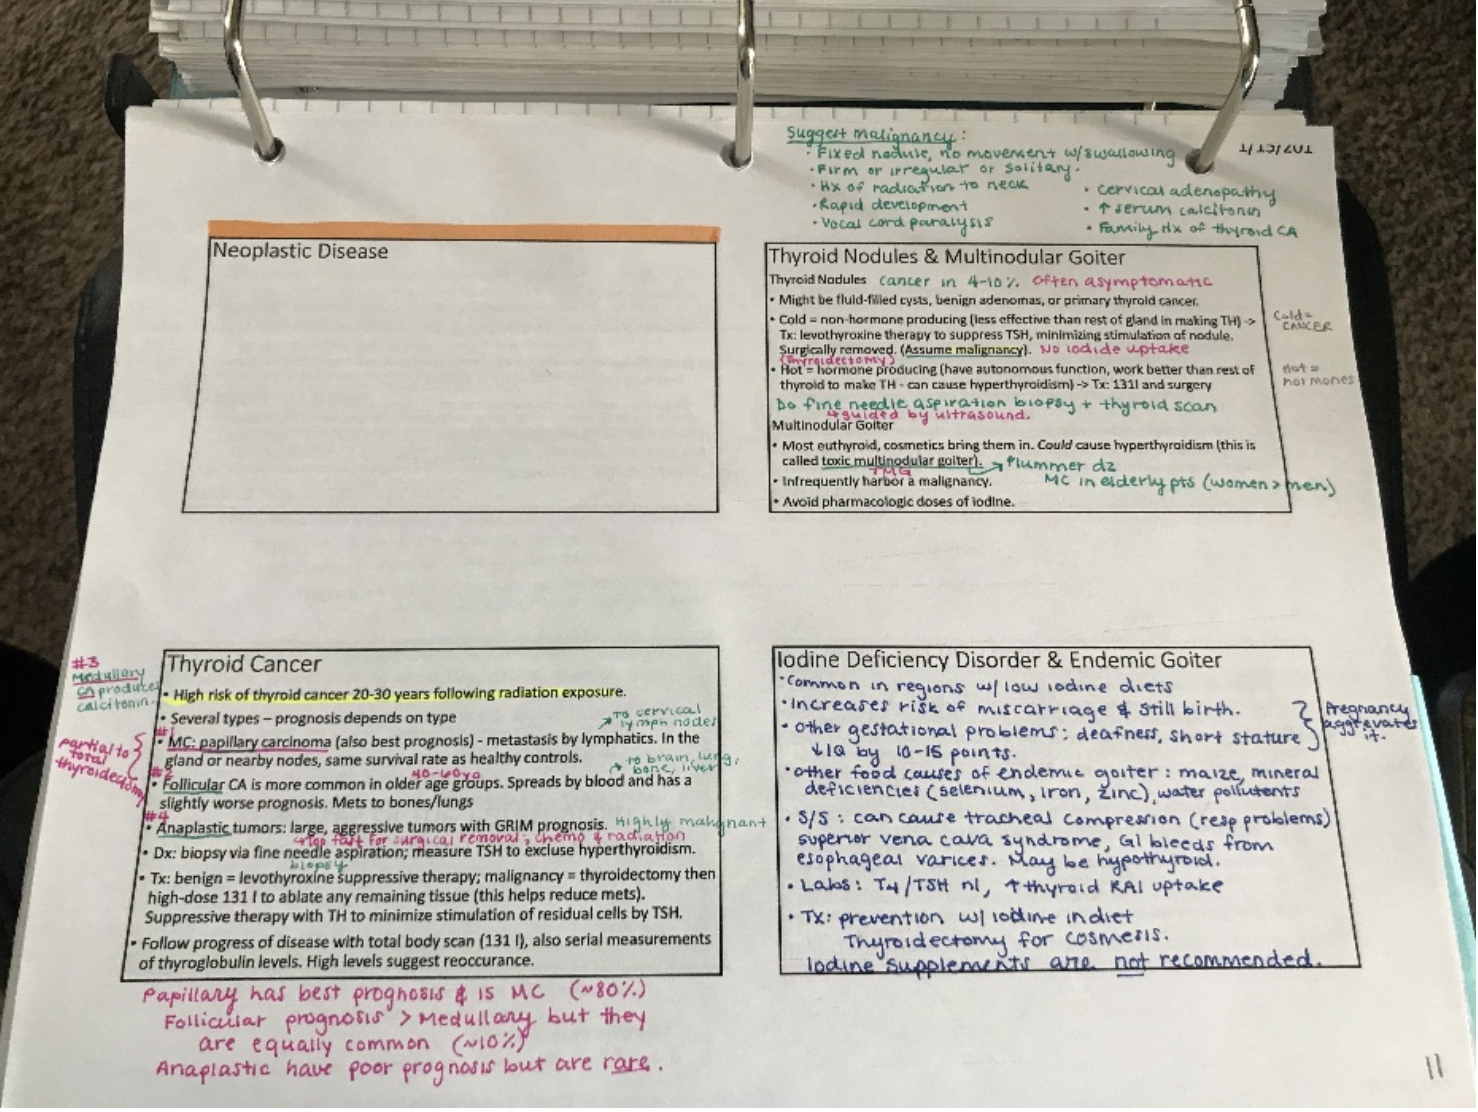 Suggest malignancy:
• Fixed nodule, no movement w/swallowing
• Firm or irregular or solitary.
• Hx of radiation to neck
• Rapid development
• Vocal cord paralysis
• cervical adenopathy
• ↑ serum calcitonin
• Family Hx of thyroid CA
Neoplastic Disease
Thyroid Nodules & Multinodular Goiter
Thyroid Nodules cancer in 4-10%. Often asymptomatic
• Might be fluid-filled cysts, benign adenomas, or primary thyroid cancer.
• Cold = non-hormone producing (less effective than rest of gland in making TH) ->
Tx: levothyroxine therapy to suppress TSH, minimizing stimulation of nodule.
Surgically removed. (Assume malignancy). No iodide uptake
(Thyroidectomy)
• Hot = hormone producing (have autonomous function, work better than rest of
thyroid to make TH - can cause hyperthyroidism) -> Tx: 131I and surgery
Do fine needle aspiration biopsy + thyroid scan
↳ guided by ultrasound.
Multinodular Goiter
• Most euthyroid, cosmetics bring them in. Could cause hyperthyroidism (this is
called toxic multinodular goiter). → Plummer dz
TMG
• Infrequently harbor a malignancy.
MC in elderly pts (women > men)
• Avoid pharmacologic doses of iodine.
Cold =
CANCER
Hot =
hormones
Thyroid Cancer
• High risk of thyroid cancer 20-30 years following radiation exposure.
• Several types – prognosis depends on type
→ To cervical
lymph nodes
#1
• MC: papillary carcinoma (also best prognosis) - metastasis by lymphatics. In the
gland or nearby nodes, same survival rate as healthy controls.
→ to brain, lung,
bone, liver
#2
40-60yo
• Follicular CA is more common in older age groups. Spreads by blood and has a
slightly worse prognosis. Mets to bones/lungs
#4
• Anaplastic tumors: large, aggressive tumors with GRIM prognosis. Highly malignant
↳ Too fast for surgical removal; chemo & radiation
• Dx: biopsy via fine needle aspiration; measure TSH to excluse hyperthyroidism.
biopsy
• Tx: benign = levothyroxine suppressive therapy; malignancy = thyroidectomy then
high-dose 131 I to ablate any remaining tissue (this helps reduce mets).
Suppressive therapy with TH to minimize stimulation of residual cells by TSH.
• Follow progress of disease with total body scan (131 I), also serial measurements
of thyroglobulin levels. High levels suggest reoccurance.
#3
Medullary
CA produces
calcitonin.
partial to
total
thyroidectomy
Papillary has best prognosis & is MC (~80%)
Follicular prognosis > Medullary but they
are equally common (~10%)
Anaplastic have poor prognosis but are rare.
Iodine Deficiency Disorder & Endemic Goiter
• Common in regions w/ low iodine diets
• Increases risk of miscarriage & still birth.
• Other gestational problems: deafness, short stature
↓IQ by 10-15 points.
Pregnancy
aggrevates
it.
• Other food causes of endemic goiter: maize, mineral
deficiencies (selenium, iron, zinc), water pollutents
• S/S: can cause tracheal compression (resp problems)
superior vena cava syndrome, GI bleeds from
esophageal varices. May be hypothyroid.
• Labs: T4/TSH nl, ↑ thyroid RAI uptake
• Tx: prevention w/ iodine in diet
Thyroidectomy for cosmesis.
Iodine supplements are not recommended.
11